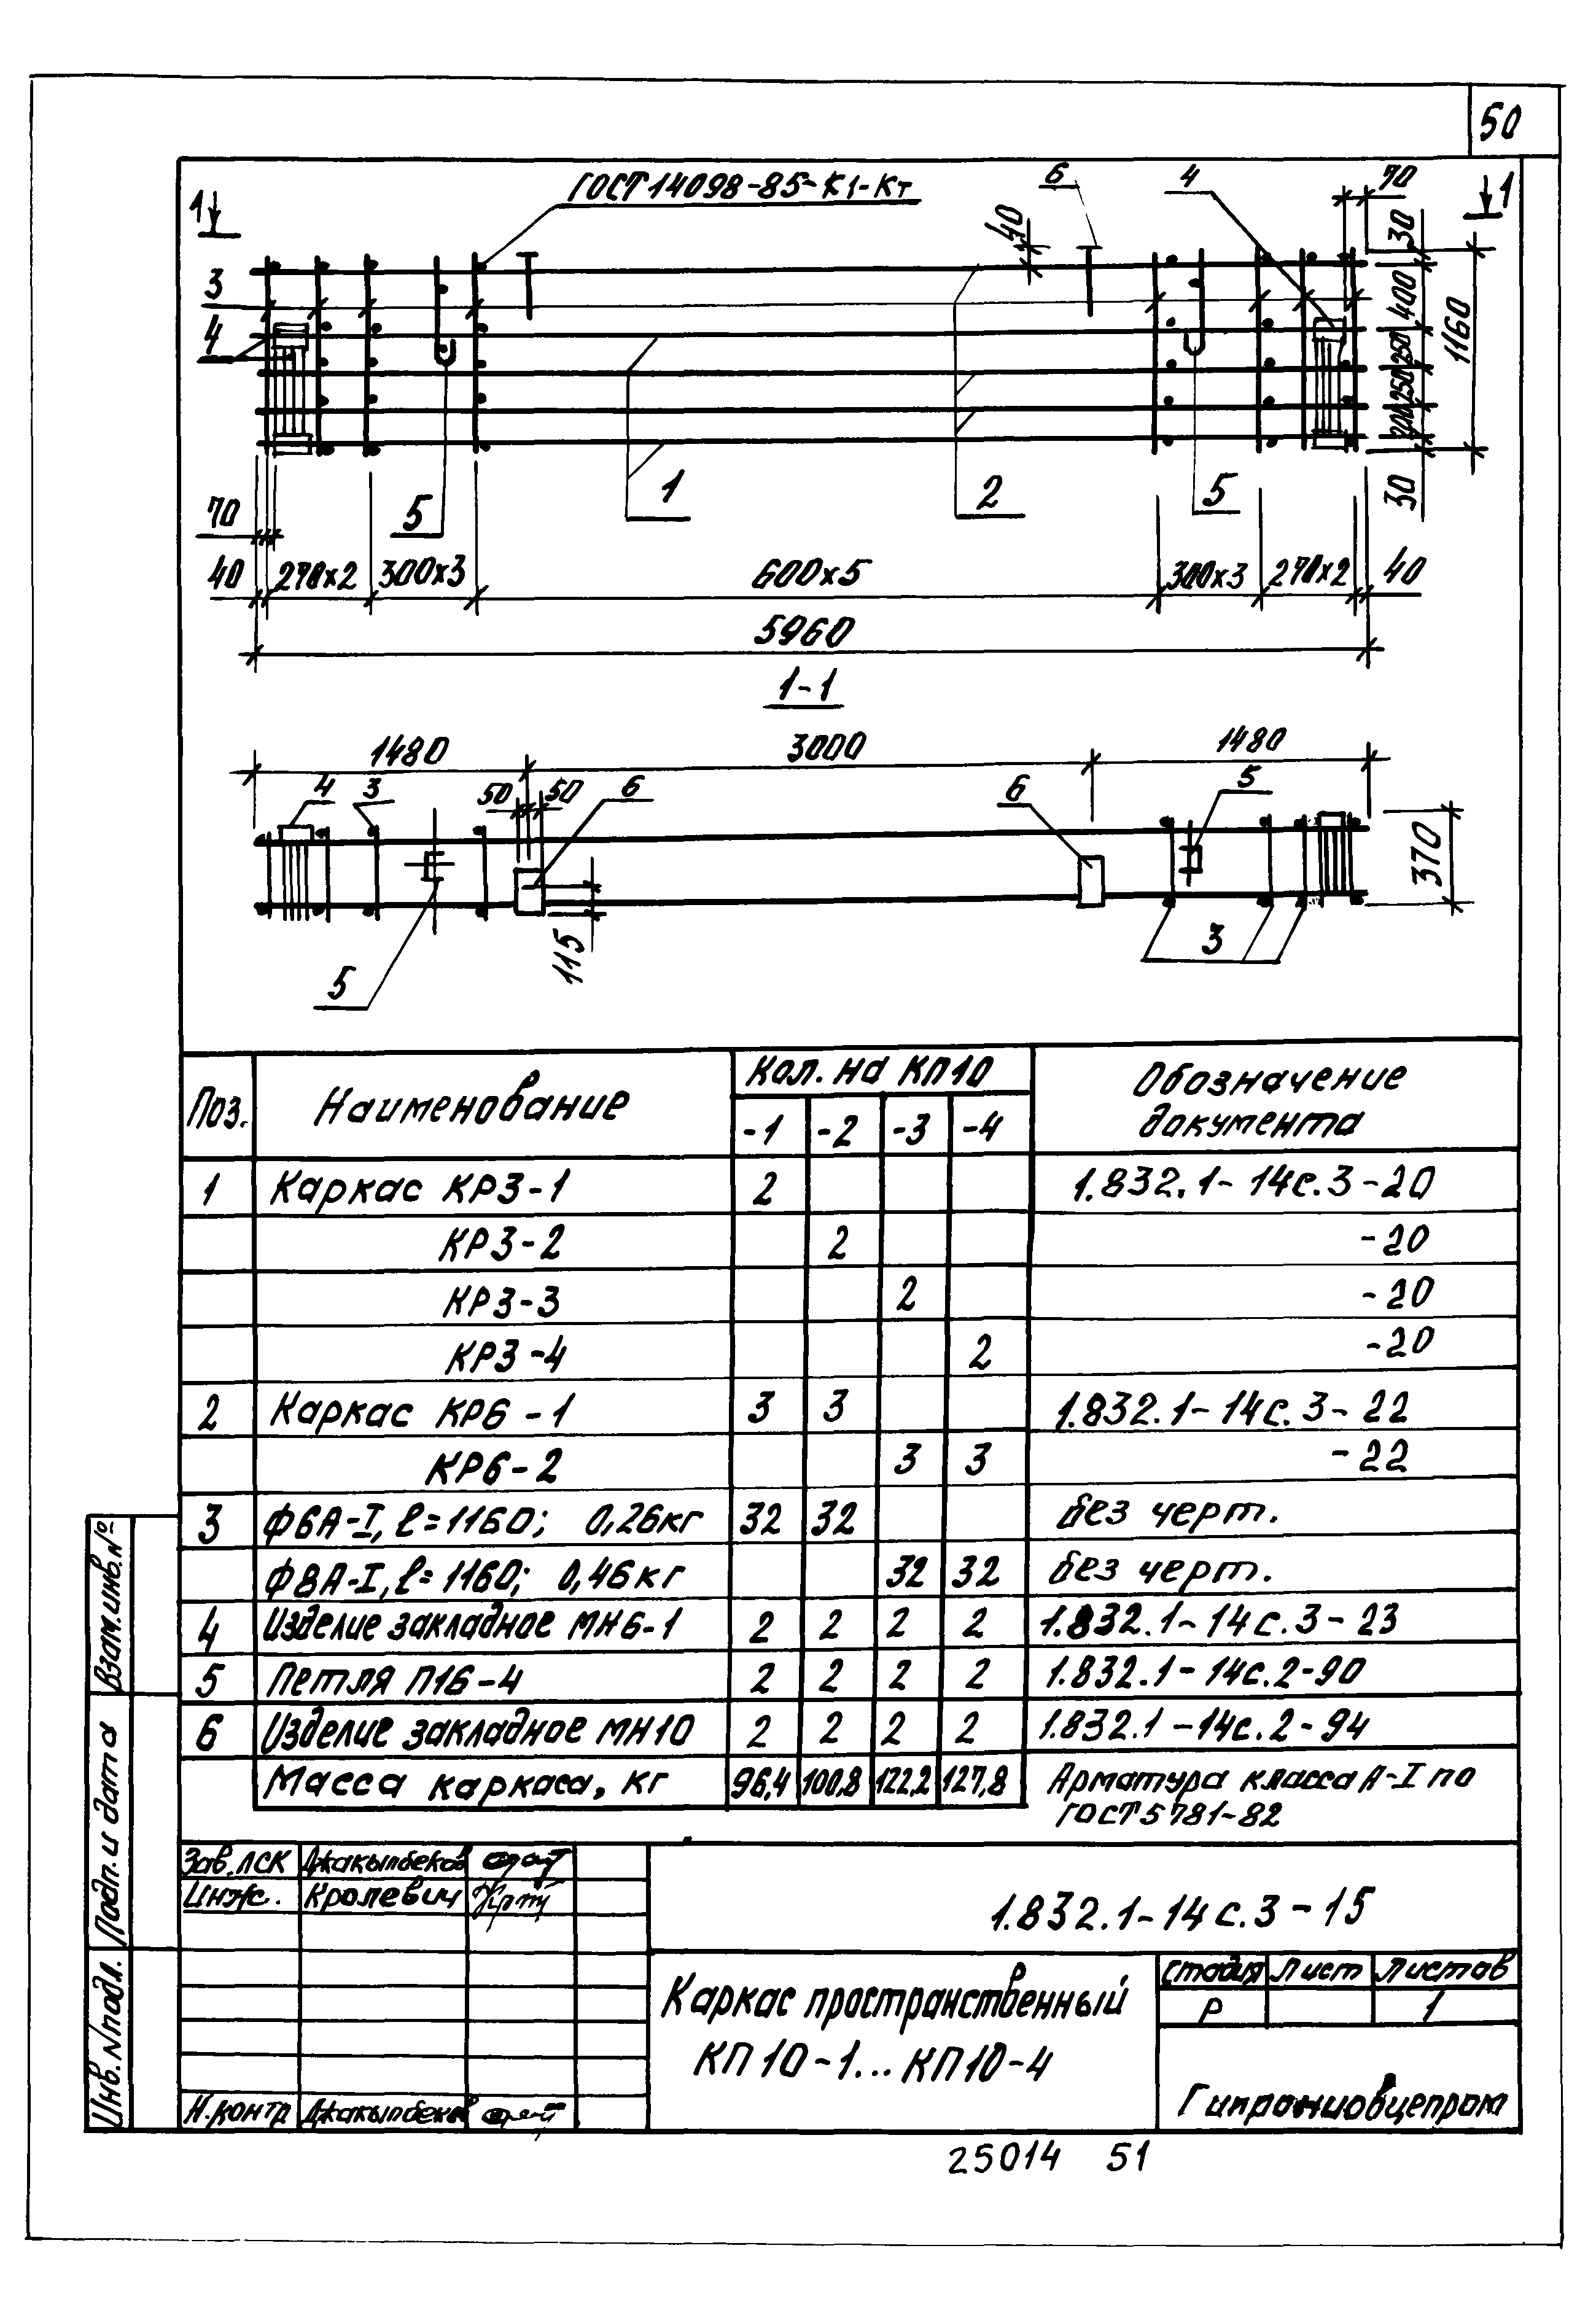 50
1
ГОСТ 14098-85-К1-Кт
6
4
70
1
40
30
400
1160
250
250
200
30
3
4
5
1
2
5
70
40
270x2
300x3
600x5
300x3
270x2
40
5960
1-1
1480
3000
1480
4
3
50
50
6
6
5
370
115
5
3
Поз.
Наименование
Кол. на КП10
Обозначение документа
-1
-2
-3
-4
1 Каркас КР3-1 2 1.832.1-14с.3-20
КР3-2 2 -20
КР3-3 2 -20
КР3-4 2 -20
2 Каркас КР6-1 3 3 1.832.1-14с.3-22
КР6-2 3 3 -22
3 Ф6А-I, ℓ=1160; 0,26кг 32 32 без черт.
Ф8А-I, ℓ=1160; 0,46кг 32 32 без черт.
4 Изделие закладное МН6-1 2 2 2 2 1.832.1-14с.3-23
5 Петля П16-4 2 2 2 2 1.832.1-14с.2-90
6 Изделие закладное МН10 2 2 2 2 1.832.1-14с.2-94
Масса каркаса, кг 96,4 100,8 122,2 127,8 Арматура класса А-I по
ГОСТ 5781-82
Взам.инв.№
Подп. и дата
Инв. №подл.
Зав.ЛСК Джакыпбеков
Инж. Кролевич
1.832.1-14с.3-15
Каркас пространственный
КП10-1...КП10-4
стадия Лист Листов
Р 1
Гипронииовцепром
Н.контр Джакыпбеков
25014 51